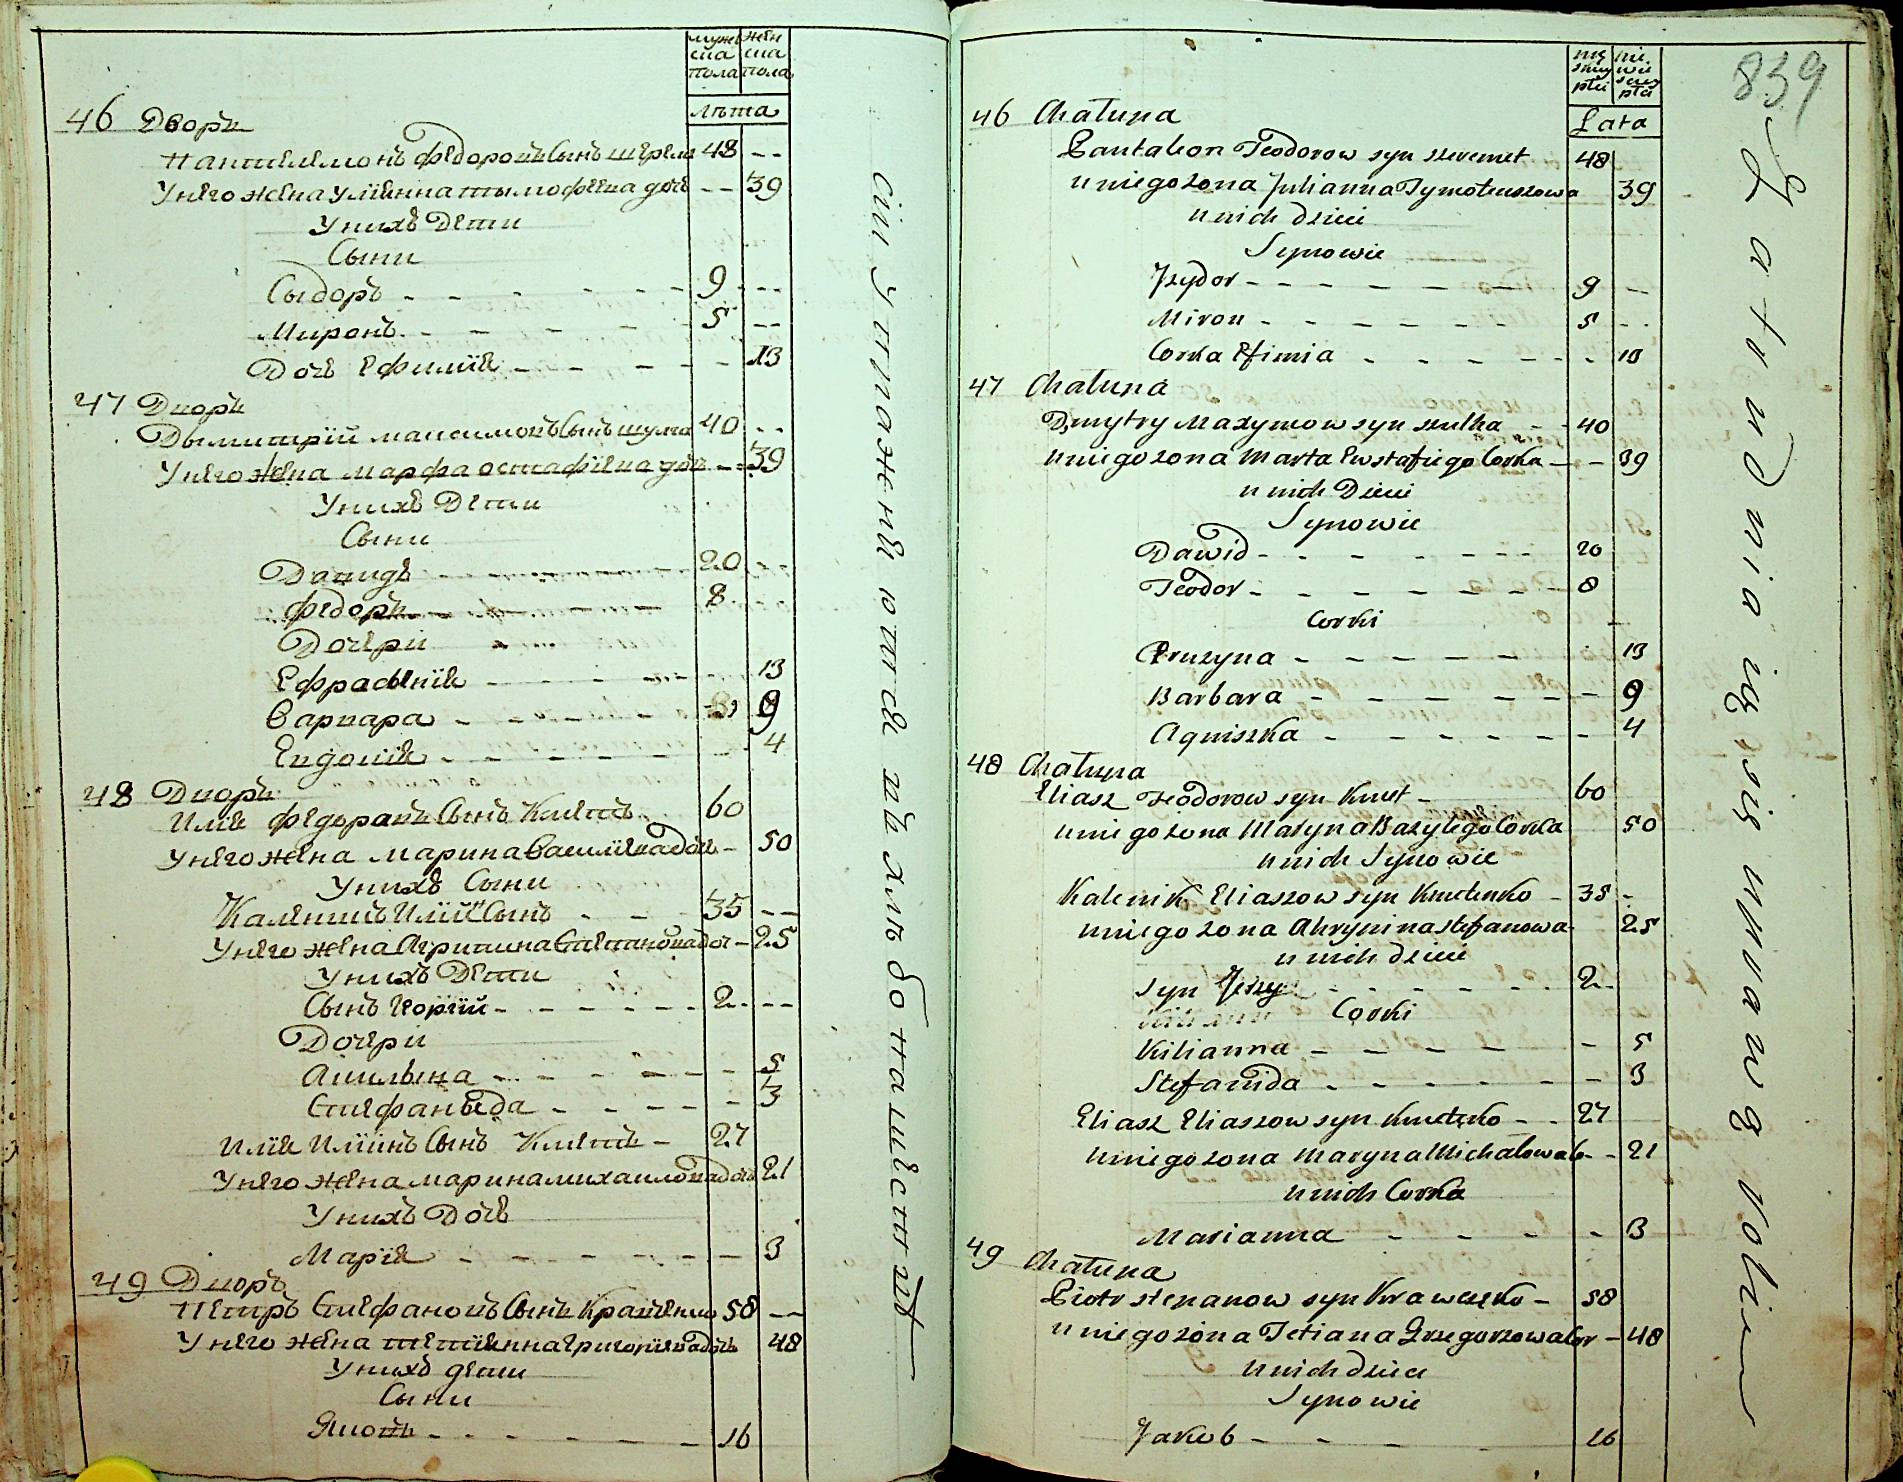 мужеска пола
женска пола
лѣта
46 Дворъ
Пантелемонъ Федоровъ Сынъ Шереме 48 --
Унего жена Улиянна Тымофеева доч -- 39
Унихъ Дети
Сыни
Сыдоръ - - - 9 --
Миронъ - - - 5 --
Доч Ефимия - - - 13
47 Дворъ
Дымитрiй Максимовъ Сынъ Шулга 40 --
Унего жена Марфа Остафиева доч -- 39
Унихъ Дети
Сыни
Давидъ - - - 20 --
Федоръ - - - 8 --
Дочери
Ефрасыния - - - 13
Варвара - - - 9
Евдокия - - - 4
48 Дворъ
Илия Федоровъ Сынъ Кметъ 60
Унего жена Марина Василиева доч - 50
Унихъ Сыни
Каленикъ Илiинъ Сынъ - - 35 --
Унего жена Агрипина Степанова доч - 25
Унихъ Дети
Сынъ Еорiй - - - 2 --
Дочери
Акилына - - - 5
Стефаныда - - - 3
Илия Илiинъ Сынъ Кметъ - 27
Унего жена Марина Михаилова дочъ 21
Унихъ Дочъ
Марiя - - - 3
49 Дворъ
Петръ Стефановъ Сынъ Кравченко 58 --
Унего жена Тетиянна Григориева дочъ 48
Унихъ дети
Сыни
Яковъ - - - 16
839
męskiey płci
niewieskiey płci
Lata
46 Chałupa
Pantaleon Teodorow syn szeremet 48
u niego żona Julianna Tymoteuszowa 39
u nich Dzieci
Synowie
Jzydor - - - 9 --
Miron - - - 5 --
Corka Efimia - - - 13
47 Chałupa
Dmytry Maxymow syn szulha - - 40
u niego żona Marta Ewstafiego Corka - - 39
u nich Dzieci
Synowie
Dawid - - - 20
Teodor - - - 8
Corki
Pruzyna - - - 13
Barbara - - - 9
Agniszka - - - 4
48 Chałupa
Eliasz Teodorow syn Kmet - 60
u niego żona Maryna Bazylego Corka 50
u nich Synowie
Kalenik Eliaszow syn Kmetenko - 35 -
u niego żona Ahrypina stefanowa 25
u nich dzieci
syn Jerzy - - - 2
Corki
Kilianna - - - 5
Stefanida - - - 3
Eliasz Eliaszow syn Kmetęko - - 27
u niego żona Maryna Michałowa C - - 21
u nich Corka
Marianna - - - 3
49 Chałupa
Piotr stepanow syn Krawczeko - 58
u niego żona Tetiana Grzegorzowa Cor - 48
u nich dzieci
Synowie
Jakub - - - 16